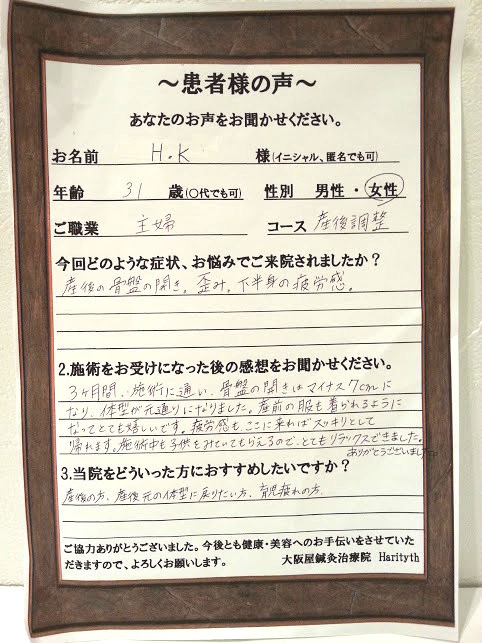 ～患者様の声～
あなたのお声をお聞かせください。
お名前 H.K 様(イニシャル、匿名でも可)
年齢 31 歳(〇代でも可) 性別 男性・女性
ご職業 主婦 コース 産後調整
今回どのような症状、お悩みでご来院されましたか？
産後の骨盤の開き。歪み。下半身の疲労感。
2.施術をお受けになった後の感想をお聞かせください。
3ヶ月間、施術に通い、骨盤の開きはマイナス7cmに
なり、体型が元通りになりました。産前の服も着られるように
なってとても嬉しいです。疲労感も、ここに来ればスッキリとして
帰れます。施術中も子供をみていてもらえるので、とてもリラックスできました。
ありがとうございました
3.当院をどういった方におすすめしたいですか？
産後の方、産後元の体型に戻りたい方、育児疲れの方
ご協力ありがとうございました。今後とも健康・美容へのお手伝いをさせていた
だきますので、よろしくお願いします。 大阪屋鍼灸治療院 Harityth